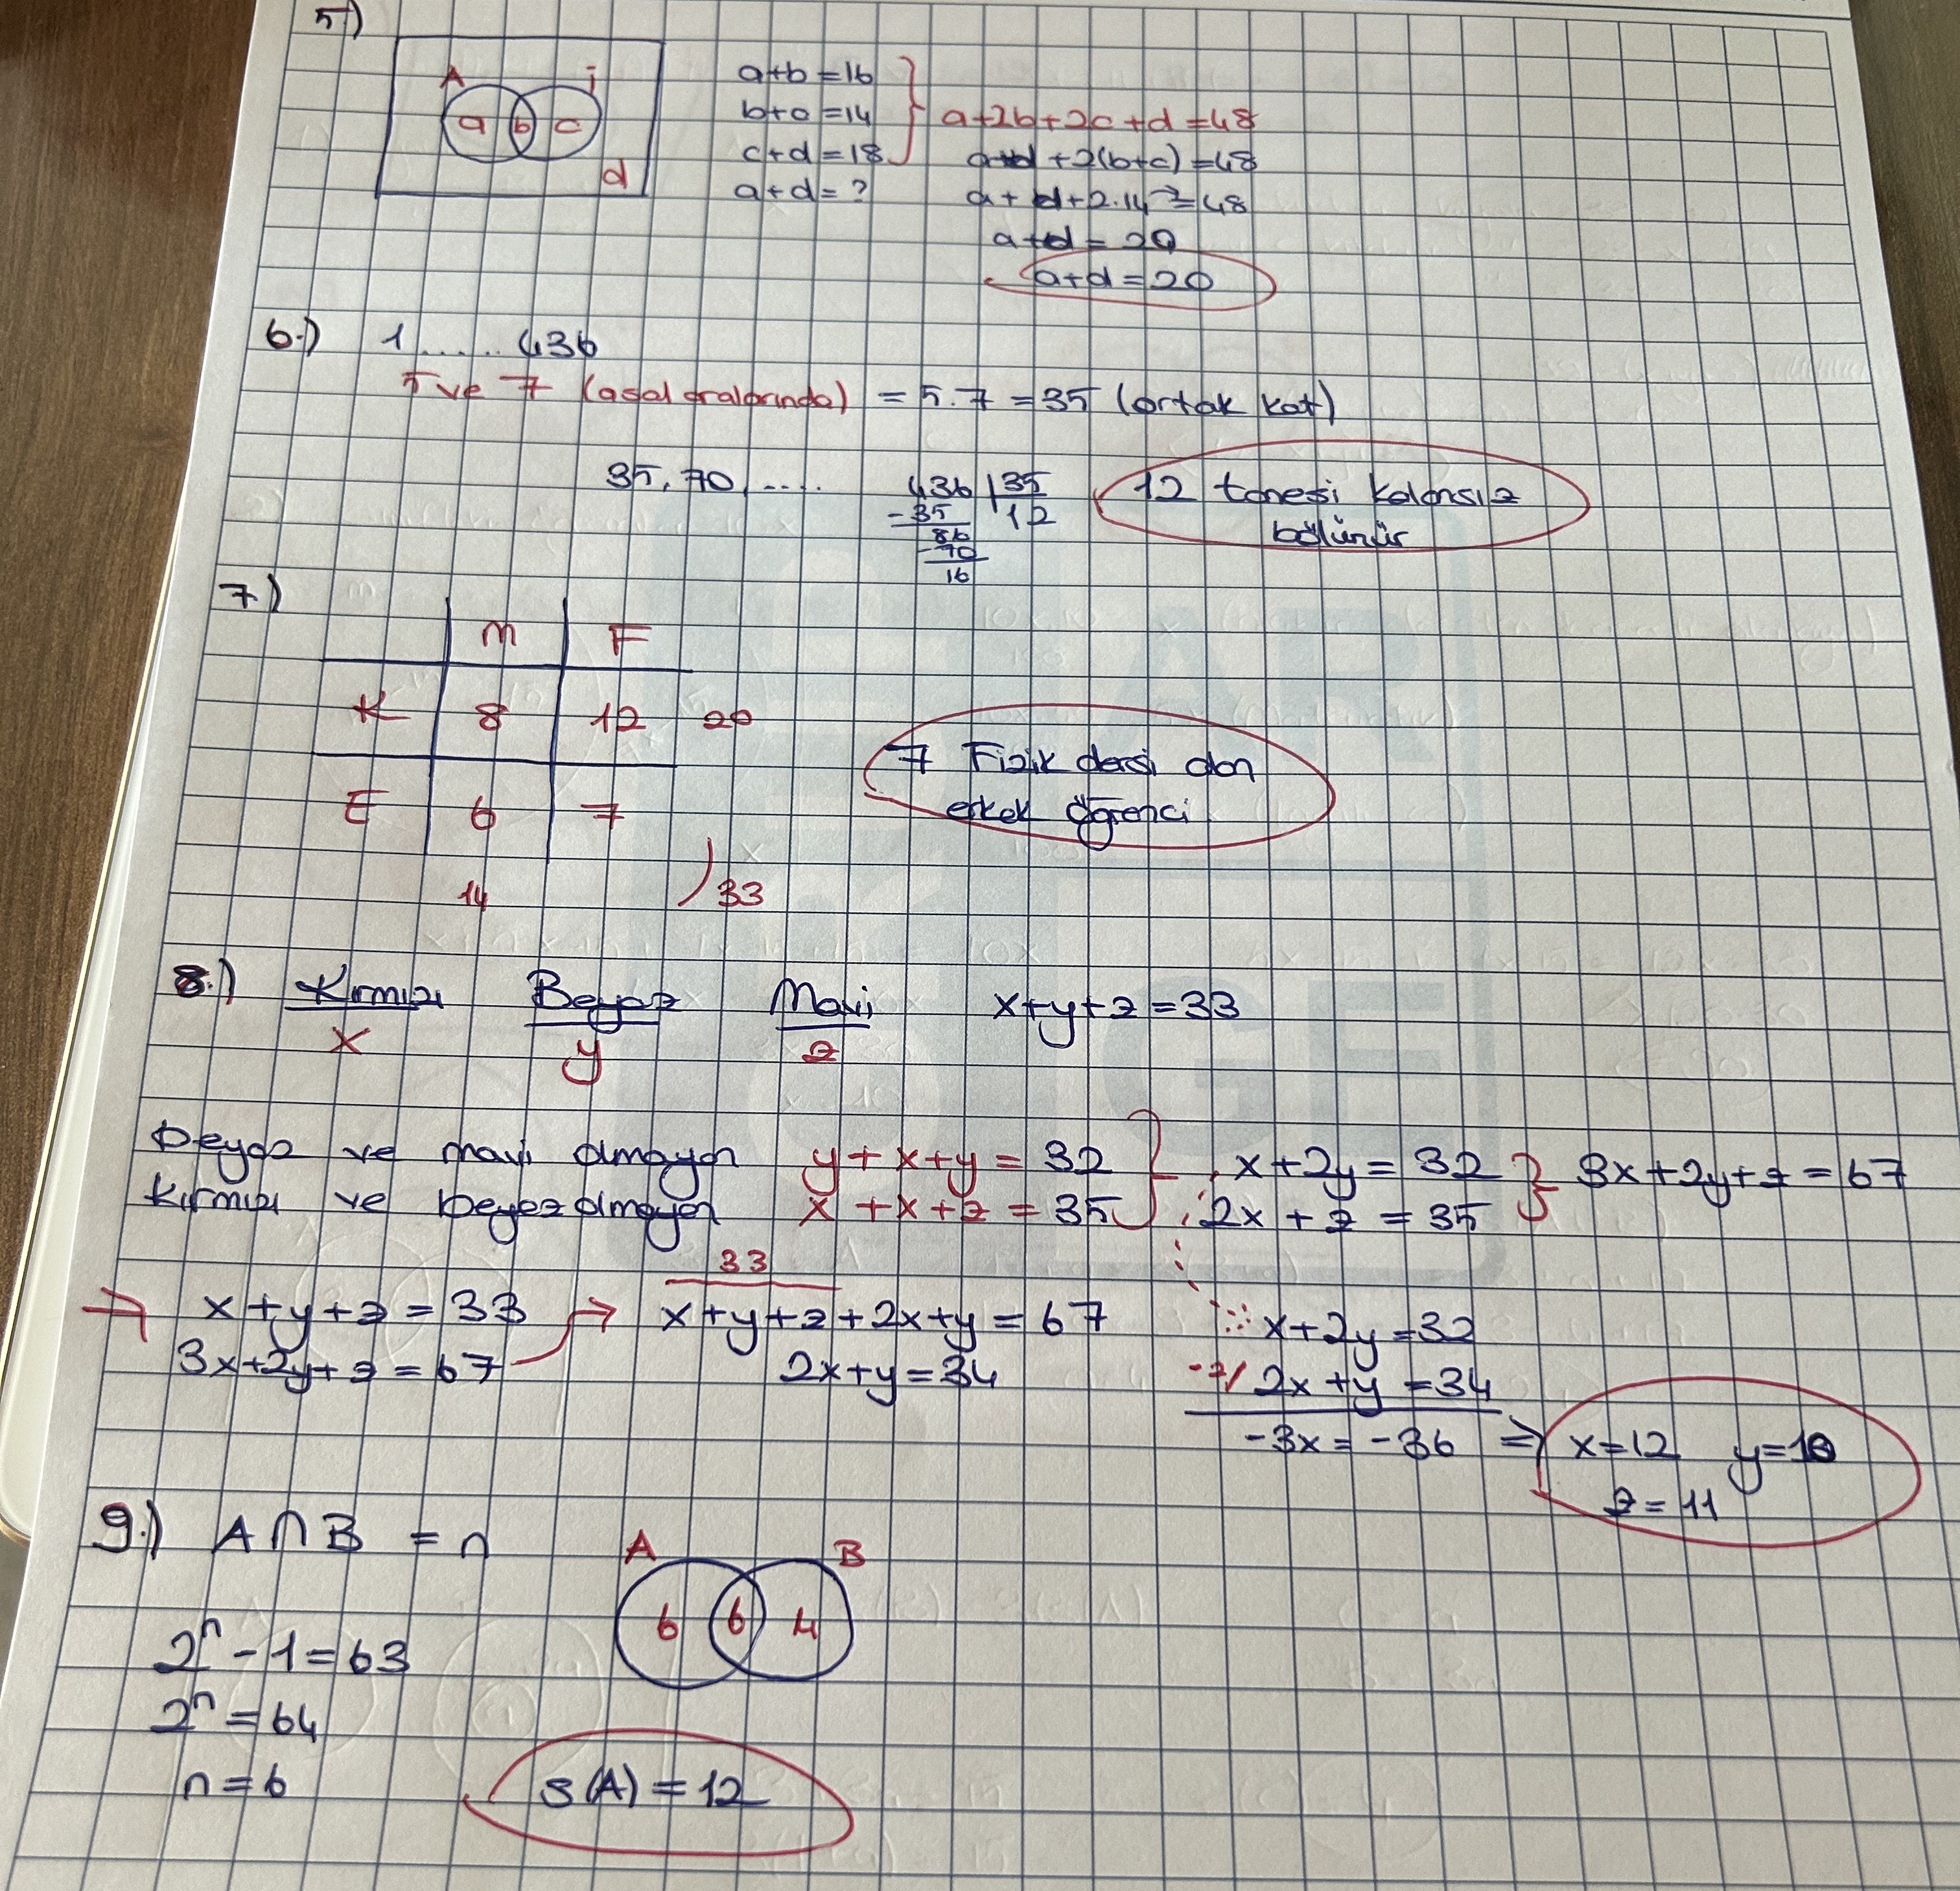 5)
A i
a b c
d
a+b=16
b+c=14
c+d=18
a+d=?
a+2b+2c+d=48
a+d+2(b+c)=48
a+d+2.14=48
a+d=20
a+d=20
6.) 1 ..... 436
5 ve 7 (asal aralarında) = 5.7=35 (ortak kat)
35, 70, ....
436 | 35
-35 12
86
-70
16
12 tanesi kalansız
bölünür
7)
M F
K 8 12 20
E 6 7
14 33
7 Fizik dersi alan
erkek öğrenci
8.) Kırmızı Beyaz Mavi x+y+z=33
x y z
beyaz ve mavi olmayan y+x+y=32 x+2y=32 3x+2y+z=67
kırmızı ve beyaz olmayan x+x+z=35 2x+z=35
33
→ x+y+z=33 → x+y+z+2x+y=67 x+2y=32
3x+2y+z=67 2x+y=34 -2/ 2x+y=34
-3x=-36 ⇒ x=12 y=10
z=11
9.) A∩B = n
A B
6 6 4
2ⁿ-1=63
2ⁿ=64
n=6
s(A)=12